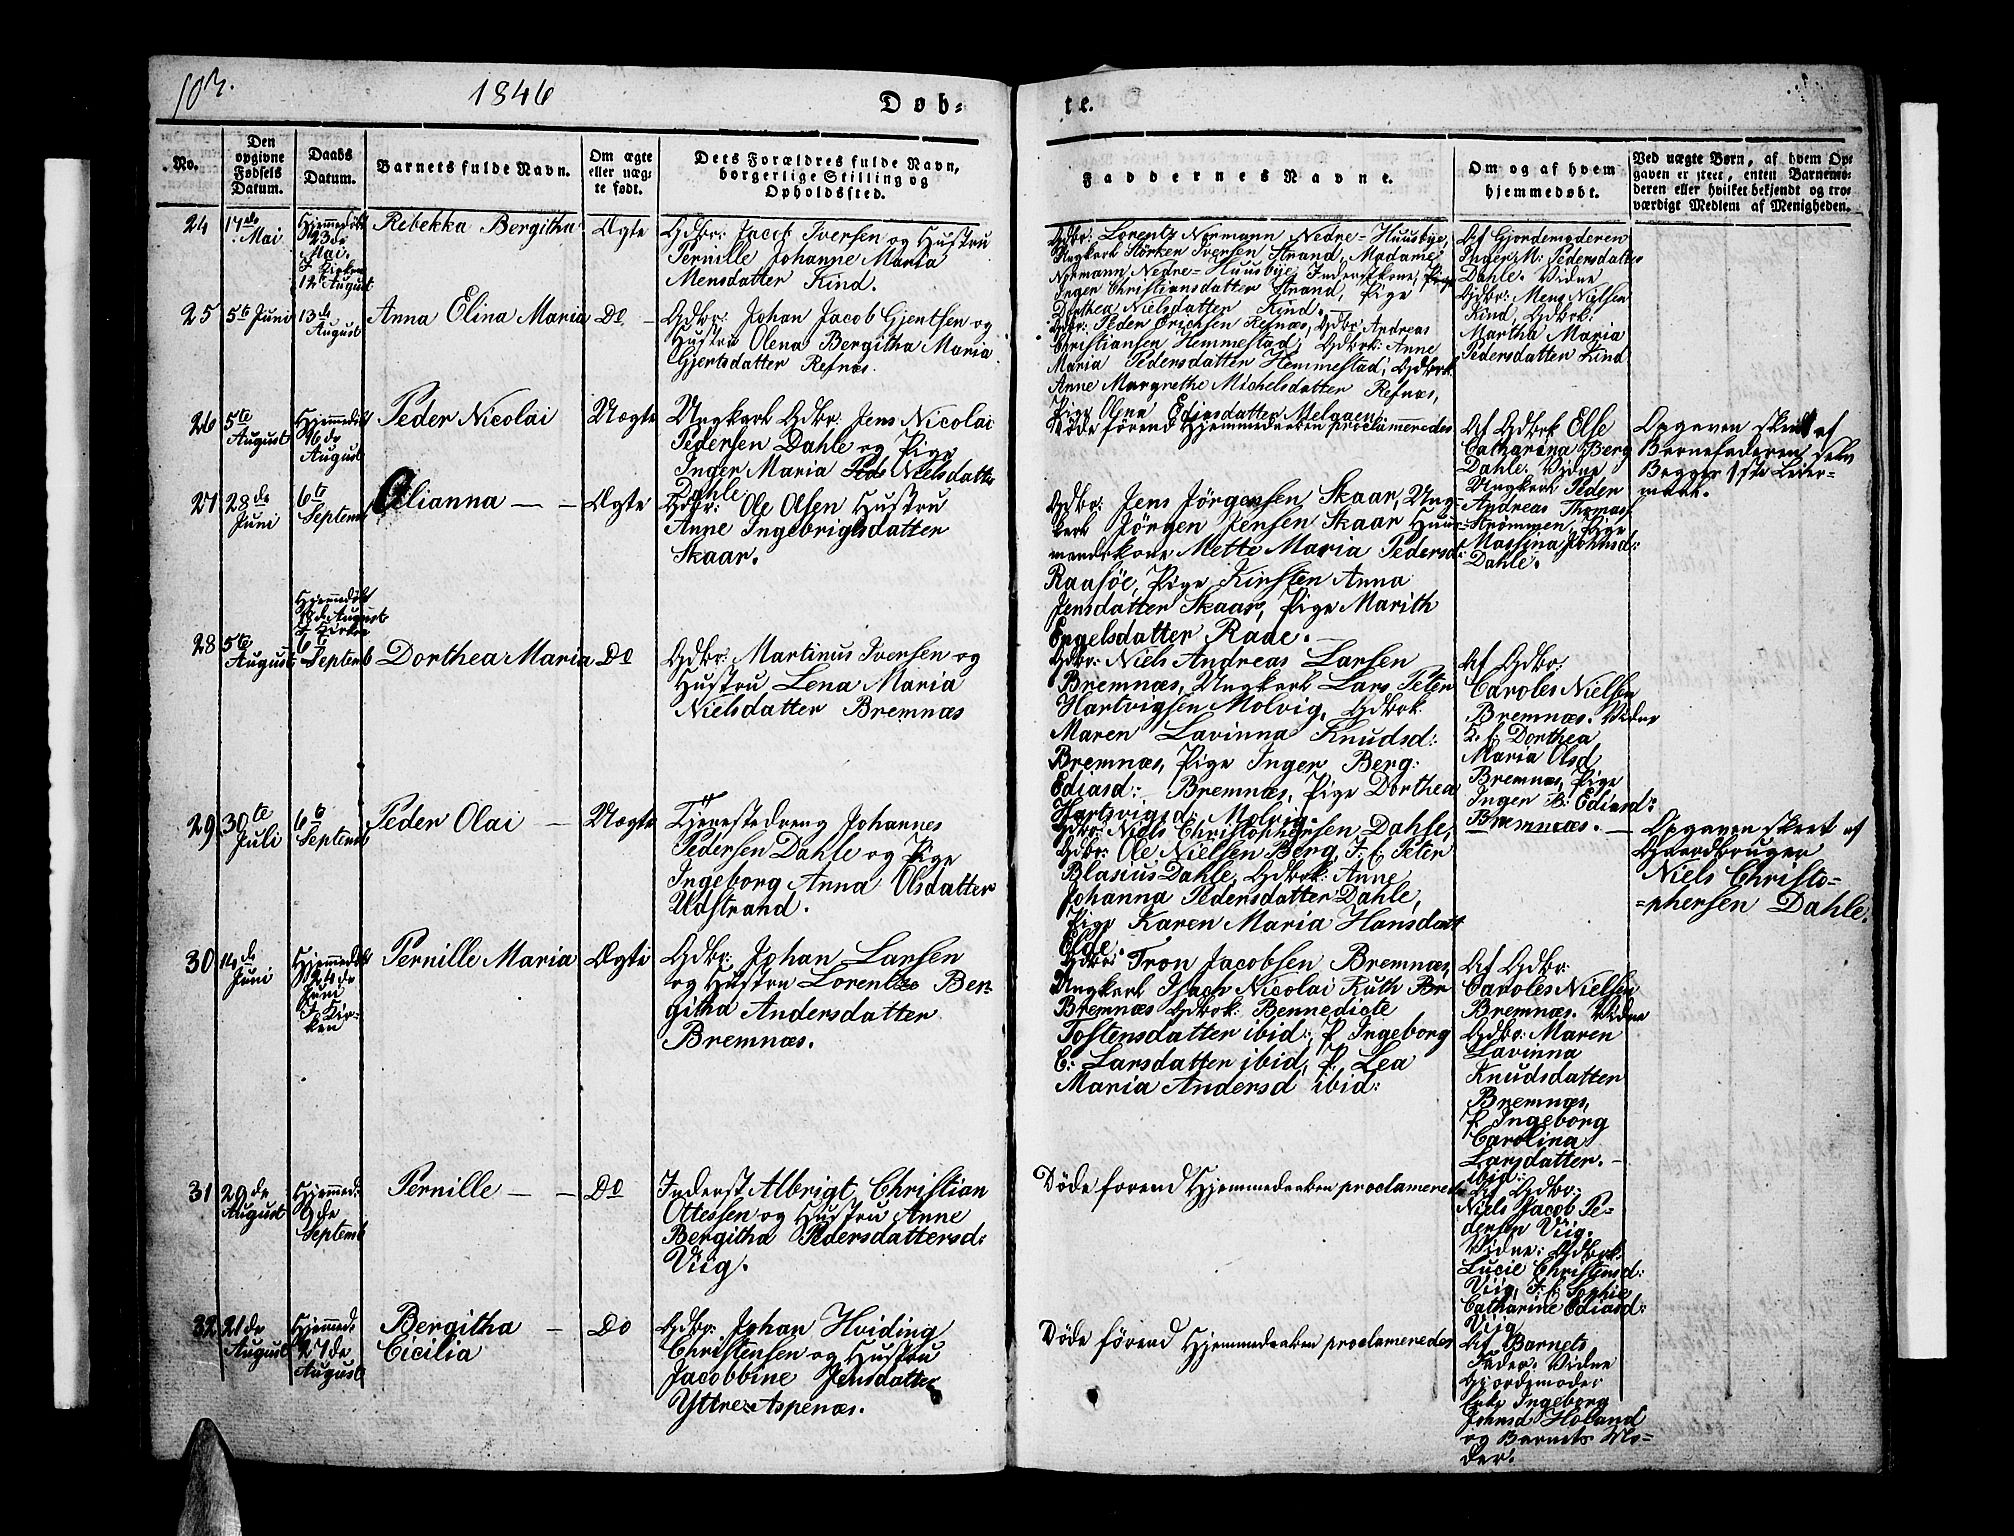 103.
1846
Døb=
te.
No.
Den opgivne Fødsels Datum.
Daabs Datum.
Barnets fulde Navn.
Om ægte eller uæg-te født.
Dets Forældres fulde Navn, borgerlige Stilling og Opholdssted.
Faddernes Navne.
Om og af hvem hjemmedøbt.
Ved uægte Børn, af hvem Op-gaven er skeet, enten Barnemo-deren eller hvilket bekjendt og tro-værdigt Medlem af Menigheden.
24
17de
Mai
Hjemmedøbt
23de
Mai.
I Kirken
12te August
Rebekka Bergitha
Ægte
Gdbr: Jacob Iversen og Hustru
Pernille Johanne Maria
Mensdatter Kind.
Gdbr: Lorentz Normann Nedre=Huusbye,
Ungkarl Størker Iversen Strand, Madame
Normann Nedre=Huusbye, Inderstkone
Inger Christiansdatter Strand, Pige
Dorthea Nielsdatter Kind.
Af Gjordemoderen
Inger M: Pedersdatter
Dahle. Vidne
Gdbr: Mens Nielsen
Kind, Gdbrk:
Martha Maria
Pedersdatter Kind
25
5te Juni
13de
August
Anna Elina Maria
Do
Gdbr: Johan Jacob Gjertsen og
Hustru Olena Bergitha Maria
Gjertsdatter Refnæs.
Gdbr: Peder Erichsen Refnæs, Gdbr Andreas
Christiansen Hemmestad, Gdbrk: Anne
Maria Pedersdatter Hemmestad, Gdbrk
Anne Margrethe Michelsdatter Refnæs,
Pige Olina Ediasdatter Melaaen.
26
5te
August
Hjemmedøbt
16de
August
Peder Nicolai
Uægte
Ungkarl Gdbr: Jens Nicolai
Pedersen Dahle og Pige
Inger Maria Nielsdatter
Dahle
Døde førend Hjemmedaaben proclameredes
Af Gdbrk Else
Catharina Berg
Dahle. Vidne
Ungkarl Peder
Andreas Thomas
Strømmen, Pige
Massina Johnsd:
Dahle.
Opgaven skeet af
Barnefaderen selv
Begges 1ste Leier=
maal.
27
28de
Juni
6te
Septemb
Olianna
Ægte
Gdbr: Ole Olsen Hustru
Anne Ingebrigtsdatter
Skaar.
Gdbr: Jens Jørgensen Skaar, Ung=
karl Jørgen Jensen Skaar Huus=
mandskone Mette Maria Pedersd:
Raasøe, Pige Kirsten Anna
Jensdatter Skaar, Pige Marith
Engelsdatter Rade.
28
5te
August
Hjemmedøbt
I Kirken
6te
Septemb
Dorthea Maria
Do
Gdbr: Martinus Iversen og
Hustru Lena Maria
Nielsdatter Bremnæs
Gdbr: Niels Andreas Larsen
Bremnæs, Ungkarl Lars Peter
Hartvigsen Molvig, Gdbrk.
Maren Lavinna Knudsd:
Bremnæs, Pige Inger Berg:
Ediasd: Bremnæs, Pige Dorthea
Hartsvigsd: Molvig.
Af Gdbr:
Caroles Nielsen
Bremnæs. Vidne
Dorthea
Maria Olsd
Bremnæs, Pige
Inger B: Ediasd:
Bremnæs.
29
30te
Juli
6te
Septemb
Peder Olai
Uægte
Tjenestedreng Johannes
Pedersen Dahle og Pige
Ingeborg Anna Olsdatter
Udstrand.
Gdbr: Niels Christophersen Dahle,
Gdbr: Ole Nielsen Berg, I. f. Peter
Blasius Dahle, Gdbrk: Anne
Johanna Pedersdatter Dahle,
Pige Karen Maria Hansdatt
Elde.
Opgaven skeet af
Gaardbruger
Niels Christo=
=phersen Dahle.
30
14de
Juni
Hjemmedøbt
24de
Juni
I Kir=
ken
Pernille Maria
Ægte
Gdbr: Johan Larsen
og Hustru Lorentze Ber=
githa Andersdatter
Bremnæs.
Gdbr: Tron Jacobsen Bremnæs,
Ungkarl Isach Nicolai Ruth Br
Bremnæs Gdbrk: Bennedicte
Tostensdatter ibid:, P. Ingeborg
C: Larsdatter ibid, P. Lea
Maria Andersd ibid:
Af Gdbr:
Caroles Nielsen
Bremnæs. Vidne
Gdbr: Maren
Lavinna
Knudsdatter
Bremnæs,
P. Ingeborg
Carolina
Larsdatter.
ibid:
31
29de
August
Hjemmed:
2de
Septemb
Pernille
Do
Inderst Albrigt Christian
Ottessen og Hustru Anne
Bergitha Pedersdattersd:
Viig.
Døde forend Hjemmedaaben proclameredes
Af Gdbr:
Niels Jacob Pe=
dersen Viig.
Vidne: Gdbrk:
Lucie Christensd:
Viig, I. f. Sophie
Catharine Ediasd:
Viig
32
21de
August
Hjemmed:
27de
August
Bergitha
Cicilia
Do
Gdbr: Johan Hviding
Christensen og Hustru
Jacobbine Jensdatter
Yttre=Aspenæs.
Døde førend Hjemmedaaben proclameredes
Af Barnets
Fader. Vidne
Gjordemoder
Enke Ingeborg
Johnsd Holand
og Barnets Mo=
der.